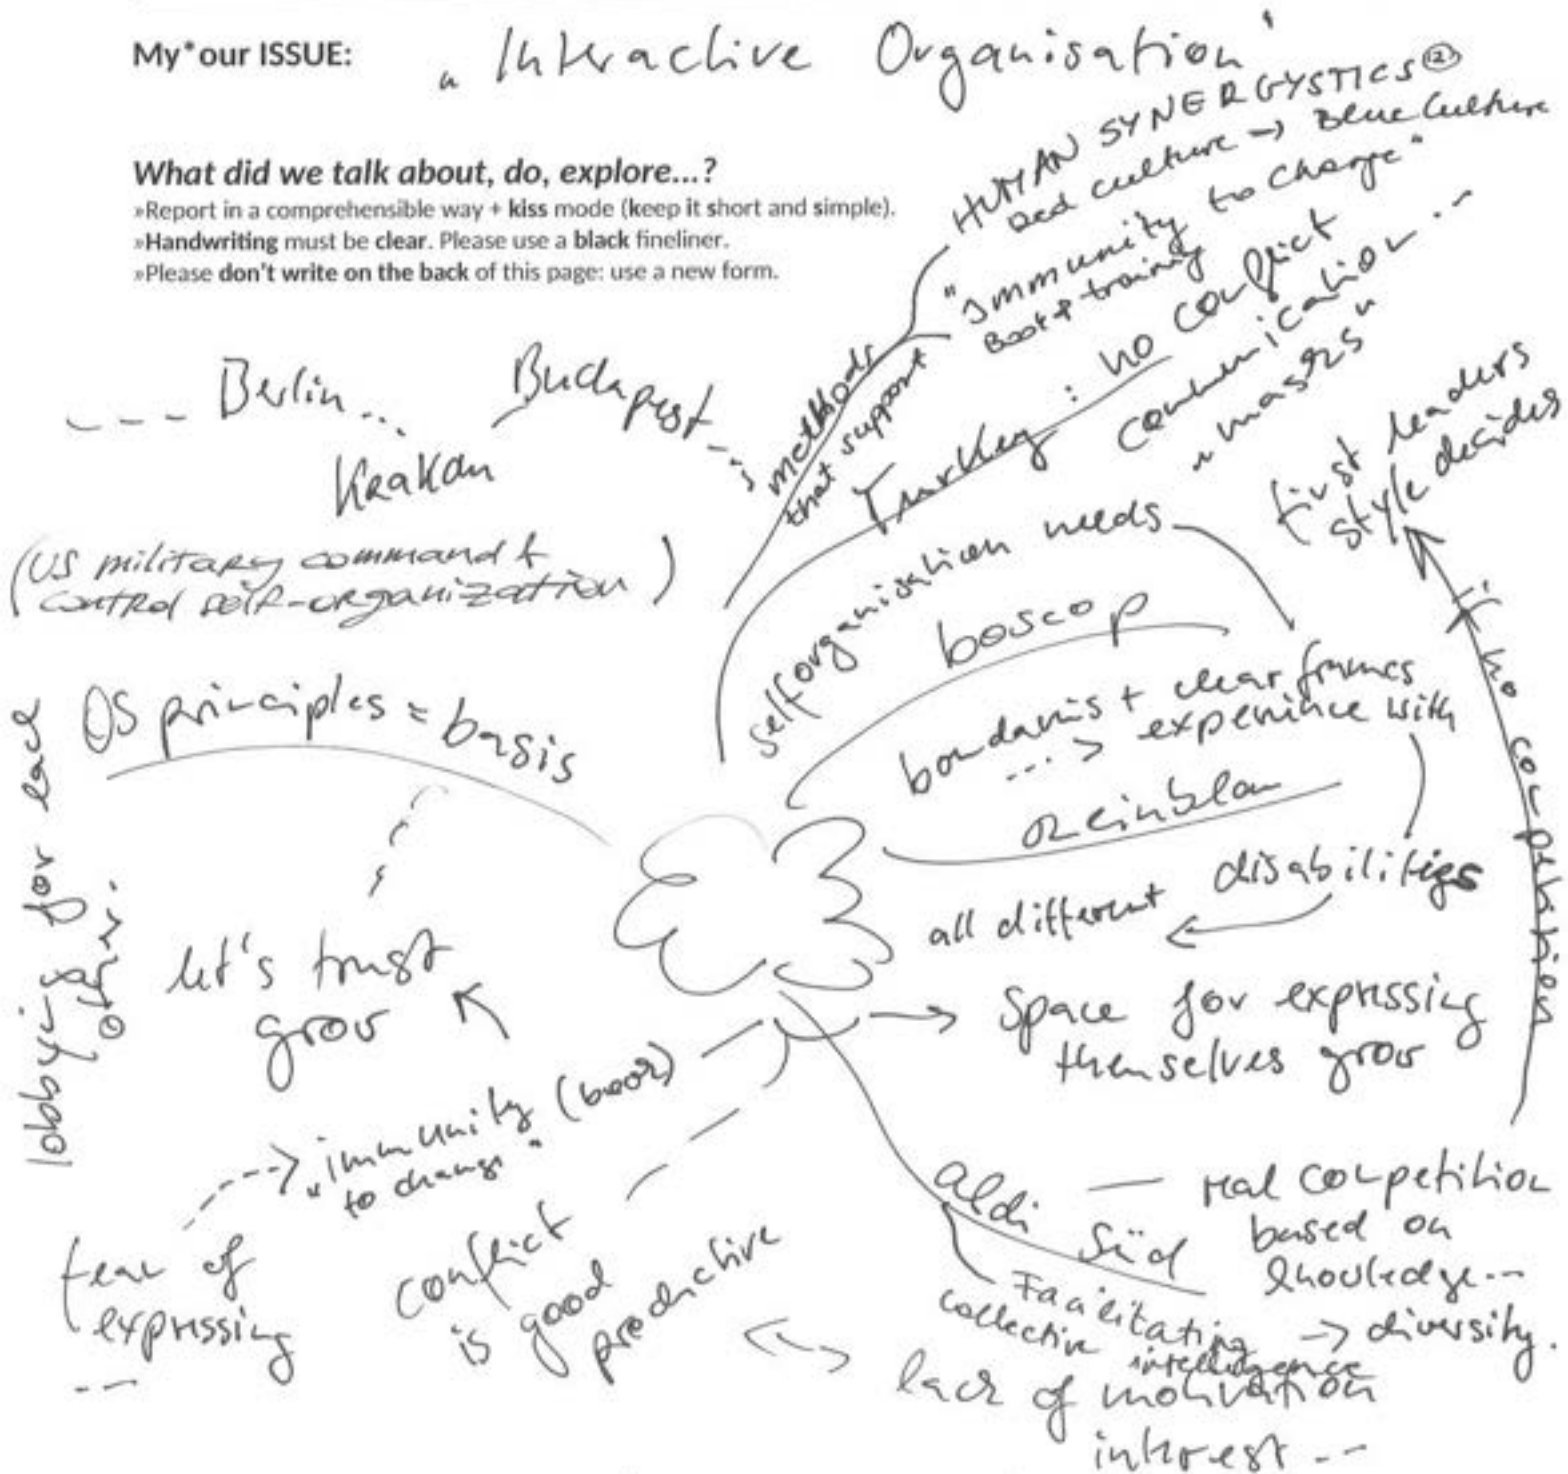 My*our ISSUE: „Interactive Organisation"
What did we talk about, do, explore...?
»Report in a comprehensible way + kiss mode (keep it short and simple).
»Handwriting must be clear. Please use a black fineliner.
»Please don't write on the back of this page: use a new form.
HUMAN SYNERGYSTICS
Red culture → Blue Culture
"Immunity to Change"
Book + training
methods
that support
Turkey: no conflict
communication...
"masks"
--- Berlin...
Krakau
Budapest...
(US military command &
control self-organization)
first leaders
style decides
if no competition
selforganisation needs
boscop
boundaries + clear frames
...> experience with
disabilities
all different
OS principles = basis
lobbying for each
let's trust
grow
Space for expressing
themselves grow
--> „immunity (book)
to change"
fear of
expressing
---
conflict
is good
productive
aldi Süd
— real competition
based on
knowledge...
→ diversity.
Facilitating
collective intelligence
<-> lack of motivation
interest...